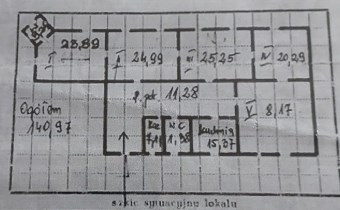 I 23,89
II 24,99
III 25,25
IV 20,29
p.pok 11,28
Ogółem
140,97
V 8,17
W C
1,98
kuchnia
15,37
szkic sytuacyjny lokalu